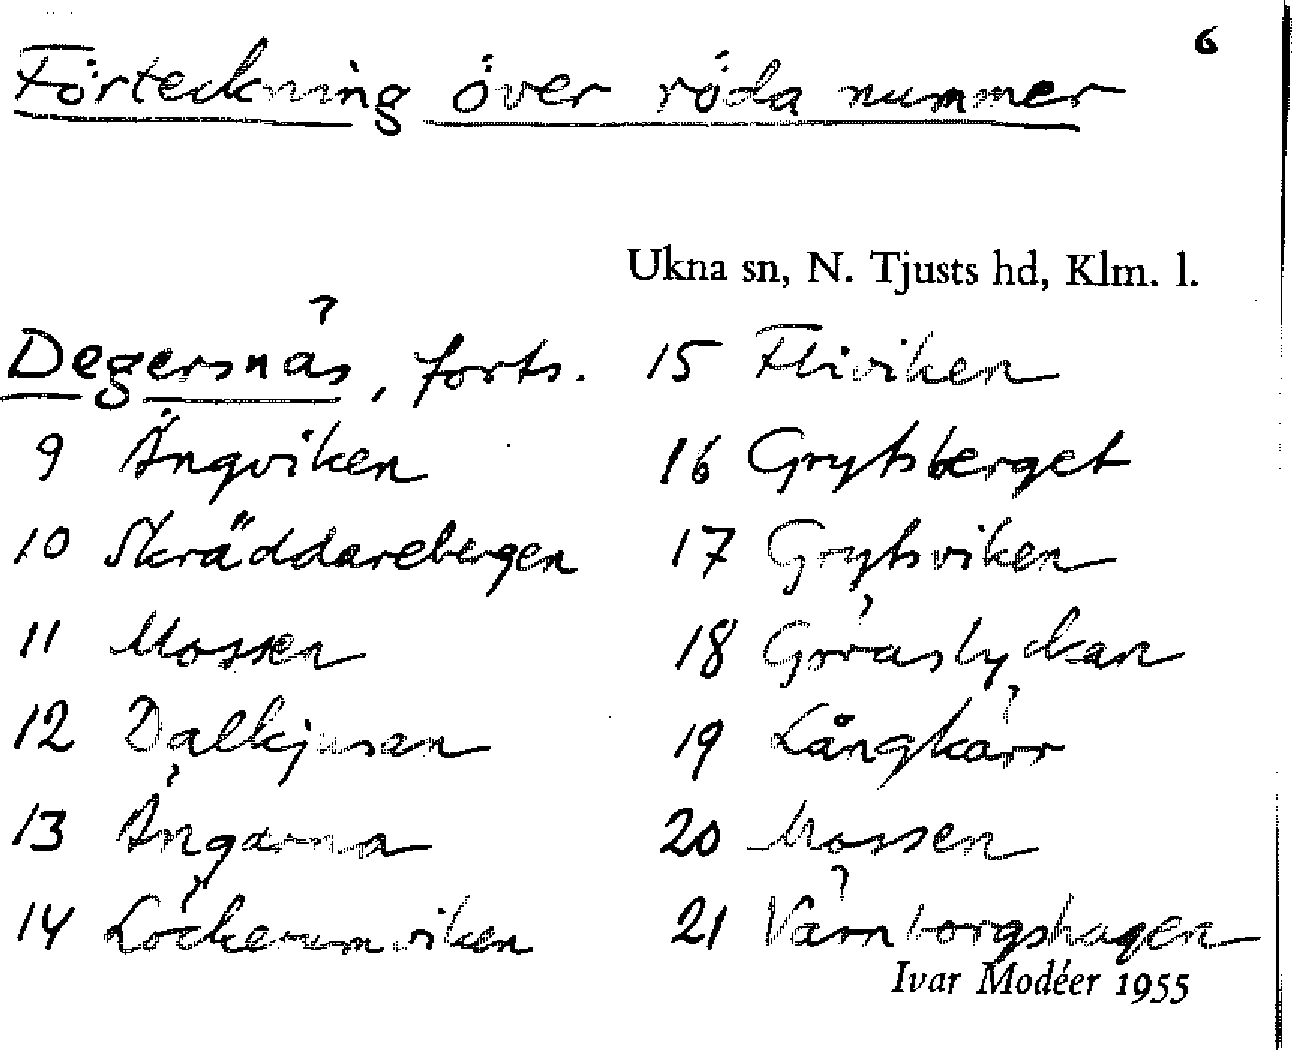 6
Förteckning över röda nummer
Ukna sn, N. Tjusts hd, Klm. l.
Degersnäs, forts.
9 Ängviken
10 Skräddarebergen
11 Mossen
12 Dalkjusan
13 Ängarna
14 Löckerumviken
15 Fliviken
16 Grytsberget
17 Grytsviken
18 Gröaslyckan
19 Långkärr
20 Mossen
21 Värnborgshagen
Ivar Modéer 1955